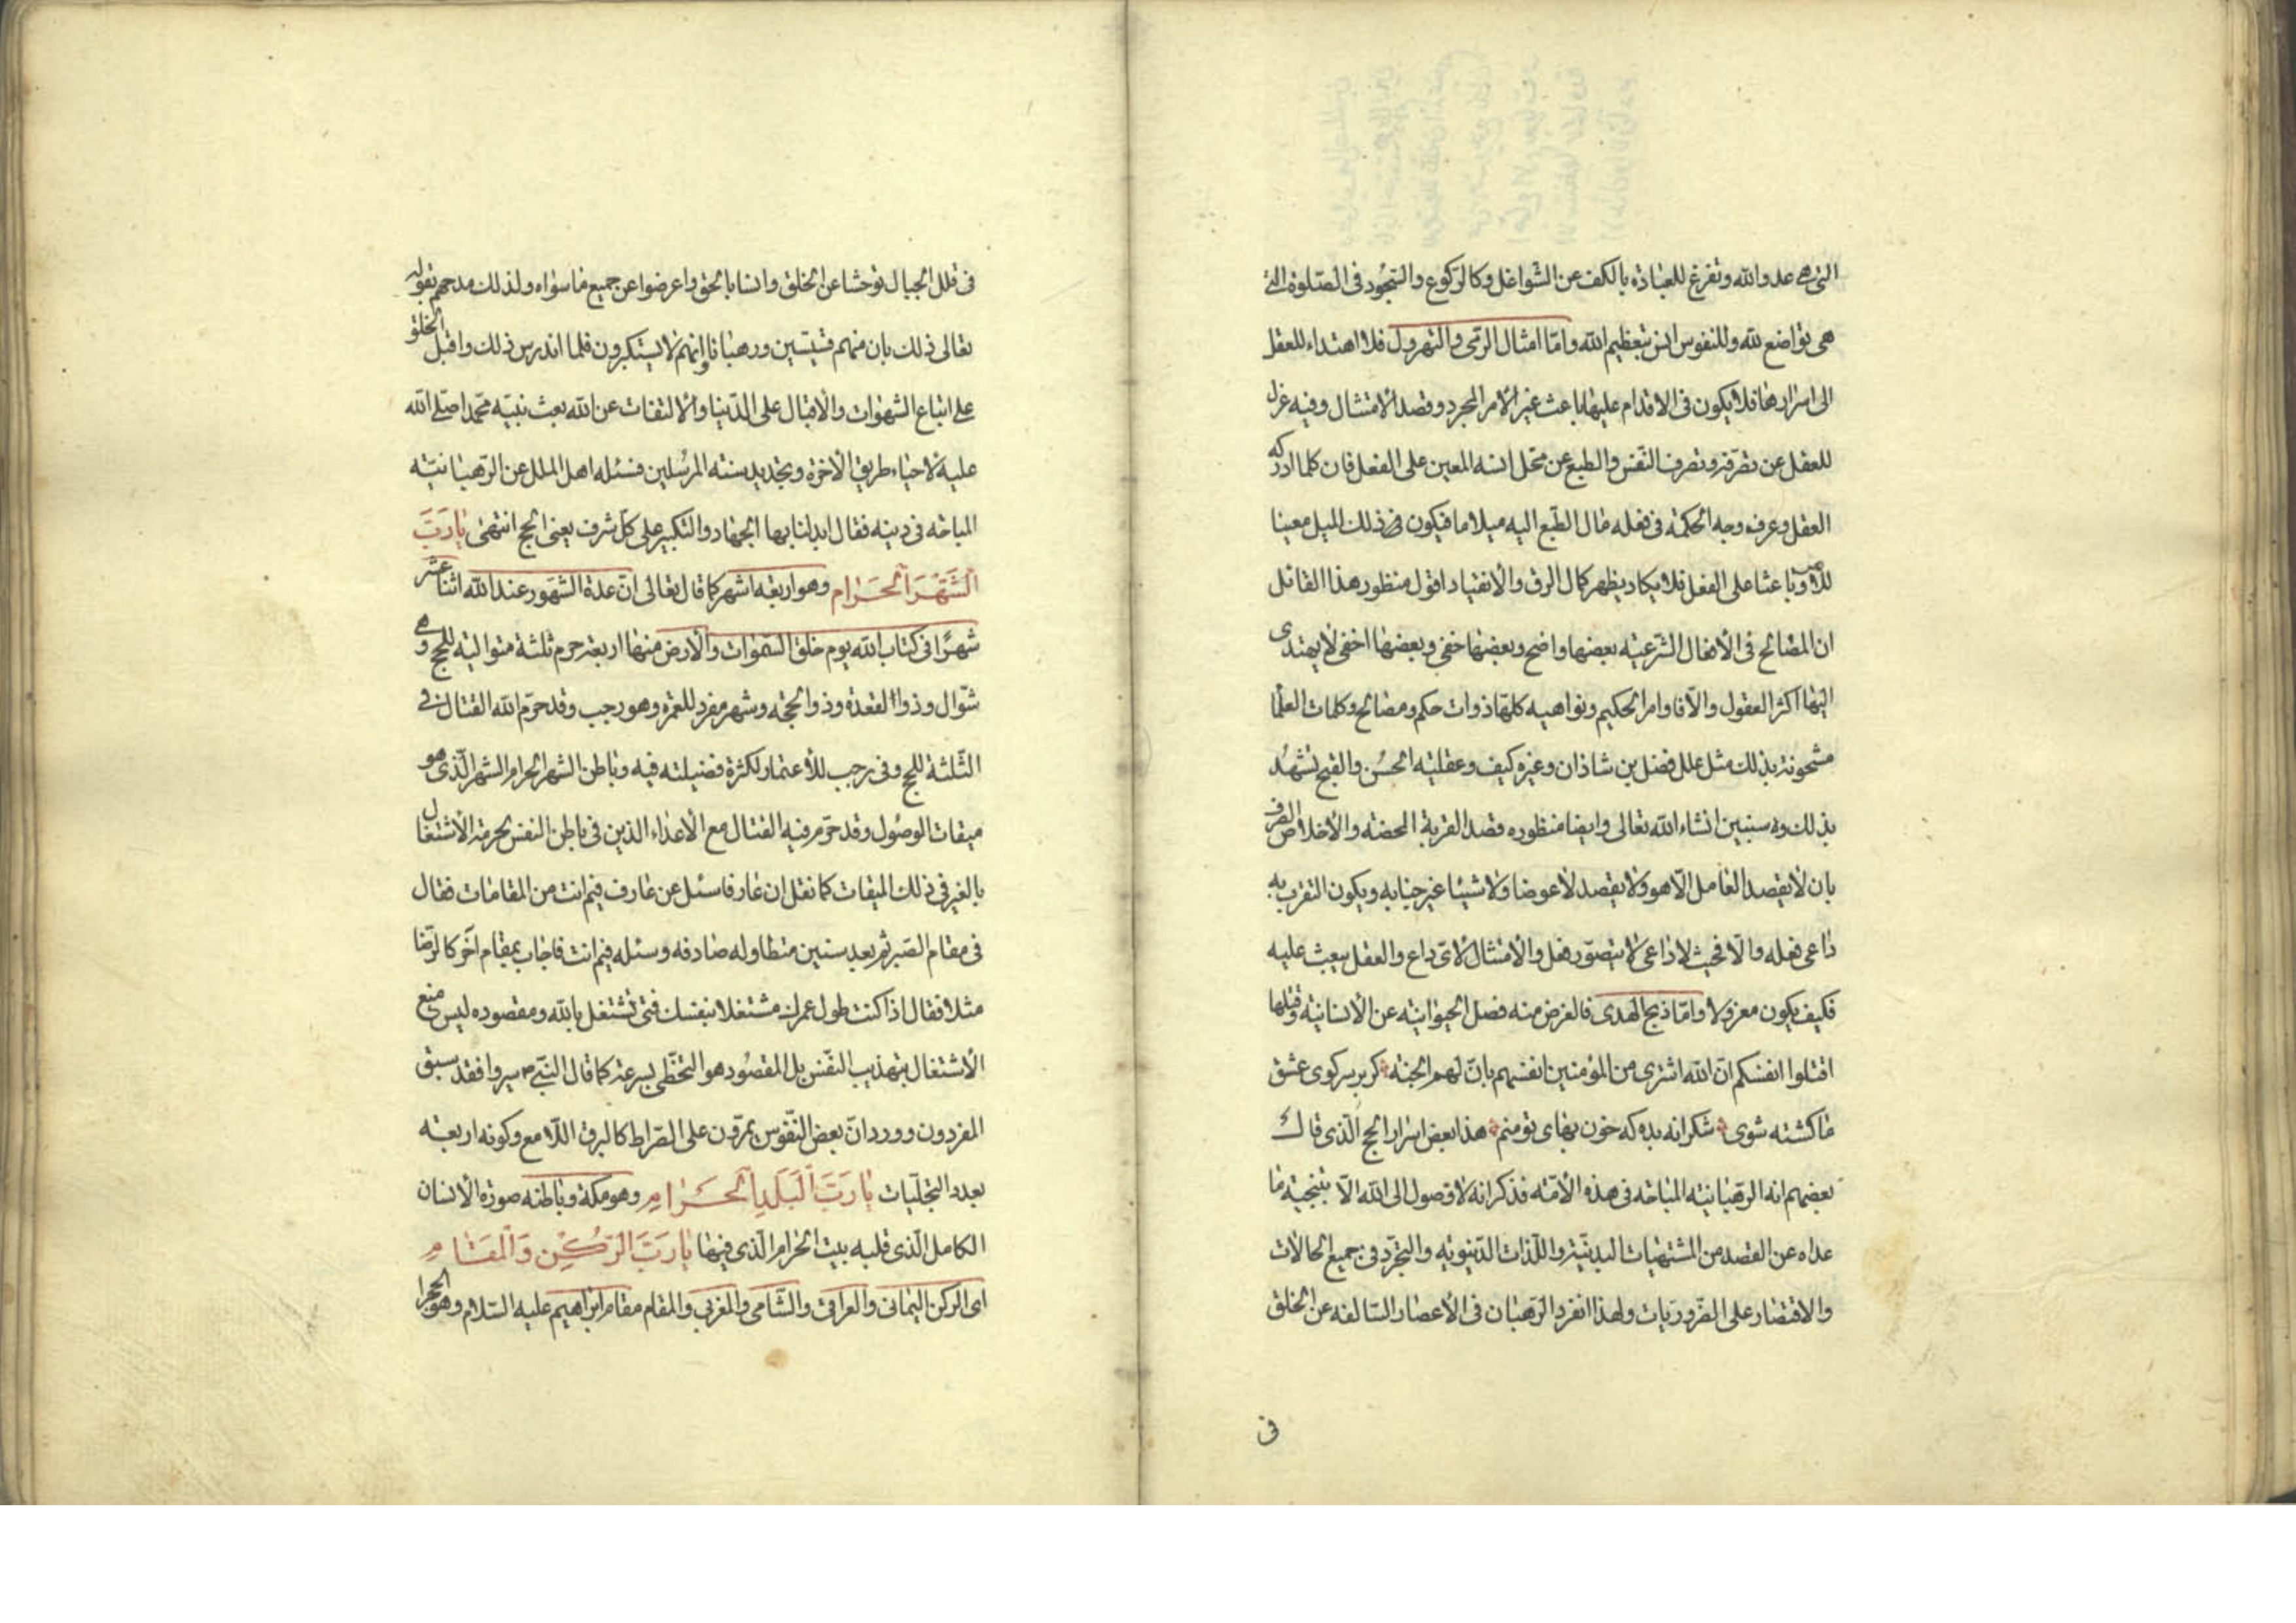 التی هی عدو الله وتفرغ للعبادة بالكف عن الشواغل وكالركوع والسجود فی الصلوة التی
هی تواضع لله وللنفوس انس بتعظیم الله واما امثال الرمی والتهرول فلا اهتداء للعقل
الی اسرارها فلا یكون فی الاقدام علیها باعث غیر الامر المجرد وقصد الامتثال وفیه عزل
للعقل عن تصرفه وتصرف النفس والطبع عن محل انسه المعین علی الفعل فان كلما ادركه
العقل وعرف وجه الحكمة فی فعله مال الطبع الیه میلا ما فیكون ذلك المیل معینا
للامر وباعثا علی الفعل فلا یكاد یظهر كمال الرق والانقیاد اقول منظور هذا القائل
ان المصالح فی الافعال الشرعیه بعضها واضح وبعضها خفی وبعضها اخفی لا یهتدی
الیها اكثر العقول والا فاوامر الحكیم ونواهیه كلها ذوات حكم ومصالح وكلمات العلما
مشحونة بذلك مثل علل فضل بن شاذان وغیره كیف وعقلیه الحسن والقبح تشهد
بذلك وسنبین انشاء الله تعالی وایضا منظوره قصد القربة المحضه والاخلاص الصرف
بان لا یقصد العامل الا هو ولا یقصد لا عوضا ولا شیئا غیر جنابه ویكون التقرب به
داعی فعله والا فحیث لا داعی لا یتصور فعل والامتثال لای داع والعقل یبعث علیه
فكیف یكون معزولا واما ذبح الهدی فالغرض منه فصل الحیوانیه عن الانسانیة وقتلها
اقتلوا انفسكم ان الله اشتری من المؤمنین انفسهم بان لهم الجنه كر بر سر كوی عشق
ما كشته شوی شكرانه بده كه خون بهای تو منم هذا بعض اسرار الحج الذی قال
بعضهم انه الرهبانیه المباحه فی هذه الامة فذكر انه لا وصول الی الله الا بتنحیة ما
عداه عن القصد من المشتهیات البدنیة واللذات الدنیویه والتجرد فی جمیع الحالات
والاقتصار علی الضروریات ولهذا انفرد الرهبان فی الاعصار السالفه عن الخلق
فی
فی قلل الجبال توحشا عن الخلق وانسا بالحق واعرضوا عن جمیع ما سواه ولذلك مدحهم بقوله
تعالی ذلك بان منهم قسیسین ورهبانا وانهم لا یستكبرون فلما اندرس ذلك واقبل الخلق
علی اتباع الشهوات والاقبال علی الدنیا والالتفات عن الله بعث نبیه محمدا صلی الله
علیه لاحیاء طریق الاخرة وتجدید سنة المرسلین فسئله اهل الملل عن الرهبانیه
المباحه فی دینه فقال ابدلنا بها الجهاد والتكبیر علی كل شرف یعنی الحج انتهی یا رب
الشهر الحرام وهو اربعه اشهر كما قال تعالی ان عدة الشهور عند الله اثنا عشر
شهرا فی كتاب الله یوم خلق السموات والارض منها اربعة حرم ثلثة متوالیه للحج وهی
شوال وذو القعدة وذو الحجه وشهر مفرد للعمره وهو رجب وقد حرم الله القتال فی
الثلثة للحج وفی رجب للاعتمار لكثرة فضیلته فیه وباطن الشهر الحرام الشهر الذی هو
میقات الوصول وقد حرم فیه القتال مع الاعداء الذین فی باطن النفس لحرمة الاشتغال
بالغیر فی ذلك المیقات كما نقل ان عارفا سئل عن عارف فیم انت من المقامات فقال
فی مقام الصبر ثم بعد سنین متطاوله صادفه وسئله فیم انت فاجاب بمقام آخر كالرضا
مثلا فقال اذا كنت طول عمرك مشتغلا بنفسك فمتی تشتغل بالله ومقصوده لیس منع
الاشتغال بتهذیب النفس بل المقصود هو التخطی بسرعة كما قال النبی ص سیروا فقد سبق
المفردون وورد ان بعض النفوس یمرون علی الصراط كالبرق اللامع وكونه اربعة
بعدد التجلیات یا رب البلد الحرام وهو مكة وباطنه صورة الانسان
الكامل الذی قلبه بیت الحرام الذی فیها یا رب الركن والمقام
ای الركن الیمانی والعراقی والشامی والمغربی والمقام مقام ابراهیم علیه السلام وهو الحجر